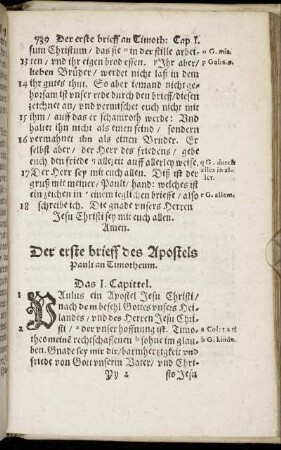 739 Der erste brieff an Timoth: Cap I.
sum Christum/ das sie in der stille arbei-
13 ten/ vnd ihr eigen brod essen. Ihr aber/
lieben Brüder/ werdet nicht laß in dem
14 ihr gutes thut. So aber iemand nicht ge-
horsam ist vnser rede durch den brieff/ diesen
zeichnet an/ vnd vermischet euch nicht mit
15 ihm/ auff das er schamroth werde: Vnd
haltet ihn nicht als einen feind/ sondern
16 vermahnet ihn als einen Bruder. Er
selbst aber/ der Herr des friedens/ gebe
euch den friede allezeit auff allerley weise.
17 Der Herr sey mit euch allen. Diß ist der
gruß mit meiner/ Pauli/ hand: welches ist
ein zeichen in einem ieglichen brieffe/ also
18 schreibe ich. Die gnade vnsers Herren
Jesu Christi sey mit euch allen.
Amen.
o G. mit.
q G. durch
alles in al-
r G. allem.
Der erste brieff des Apostels
Pauli an Timotheum.
Das I. Capittel.
1 Paulus ein Apostel Jesu Christi/
nach dem befehl Gottes vnsers Hei-
landes/ vnd des Herren Jesu Chri-
2 sti/ a der vnser hoffnung ist. Timo-
theo meinē rechtschaffenen b sohne im glau-
ben. Gnade sey mit dir/ barmhertzigkeit vnd
friede von Gott vnserm Vater/ vnd Chri-
a Col: 1 27
b G. kinde.
Yy 2 sto Jesu